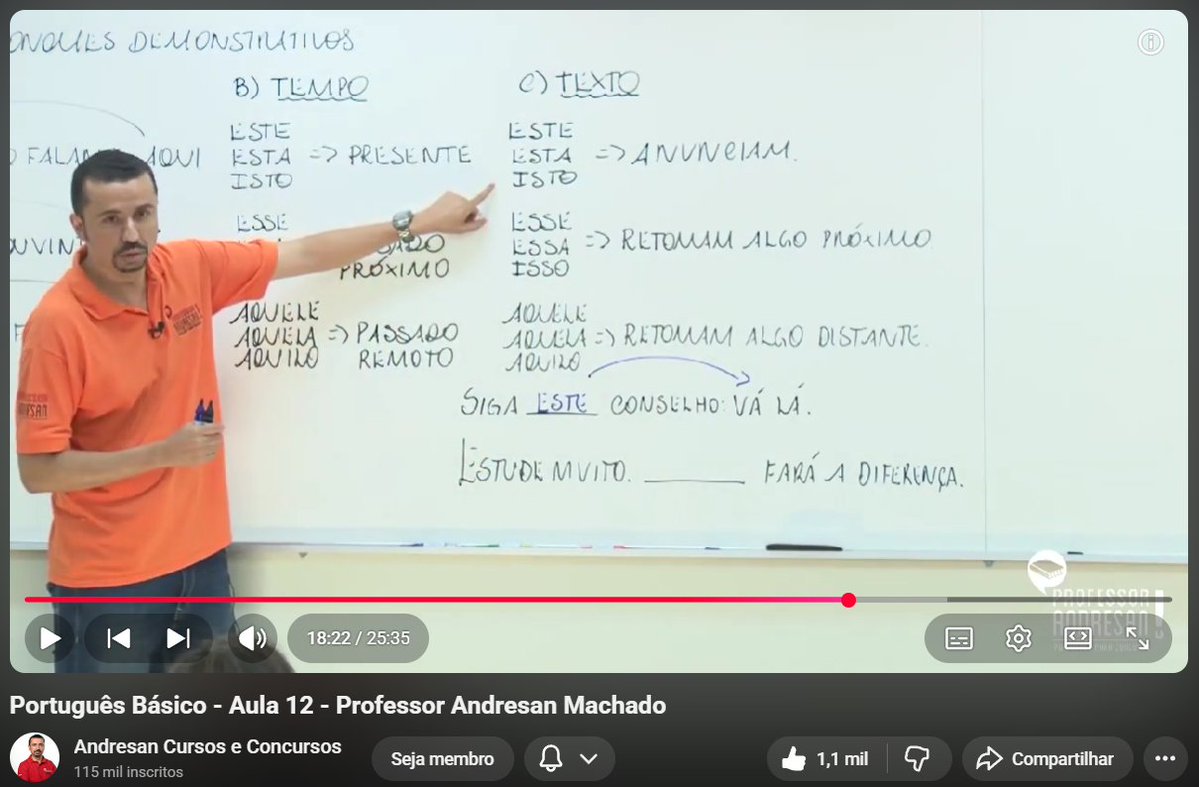 DEMONSTRATIVOS
B) TEMPO
ESTE
ESTA => PRESENTE
ISTO
ESSE
PRÓXIMO
AQUELE
AQUELA => PASSADO
AQUILO REMOTO
C) TEXTO
ESTE
ESTA => ANUNCIAM.
ISTO
ESSE
ESSA => RETOMAM ALGO PRÓXIMO
ISSO
AQUELE
AQUELA => RETOMAM ALGO DISTANTE.
AQUILO
SIGA ESTE CONSELHO: VÁ LÁ.
ESTUDE MUITO. ______ FARÁ A DIFERENÇA.
AQUI
PROFESSOR
ANDRESAN!
18:22 / 25:35
Português Básico - Aula 12 - Professor Andresan Machado
Andresan Cursos e Concursos
115 mil inscritos
Seja membro
1,1 mil
Compartilhar